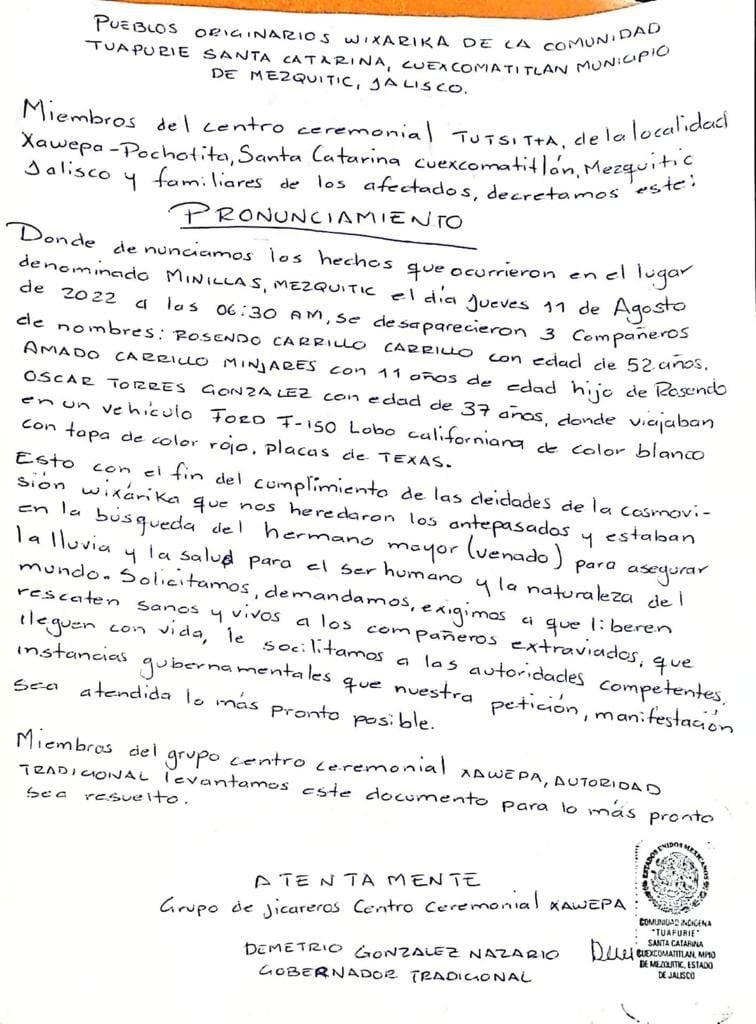 PUEBLOS ORIGINARIOS WIXARIKA DE LA COMUNIDAD
TUAPURIE SANTA CATARINA, CUEXCOMATITLAN MUNICIPIO
DE MEZQUITIC, JALISCO.
Miembros del centro ceremonial TUTSITTA, de la localidad
Xawepa-Pochotita, Santa Catarina cuexcomatitlán, Mezquitic
Jalisco y familiares de los afectados, decretamos este:
PRONUNCIAMIENTO
Donde denunciamos los hechos que ocurrieron en el lugar
denominado MINILLAS, MEZQUITIC el día Jueves 11 de Agosto
de 2022 a las 06:30 AM, se desaparecieron 3 Compañeros
de nombres: ROSENDO CARRILLO CARRILLO con edad de 52 años.
AMADO CARRILLO MINJARES con 11 años de edad hijo de Rosendo
OSCAR TORRES GONZALEZ con edad de 37 años, donde viajaban
en un vehículo FORD F-150 Lobo californiana de color blanco
con tapa de color rojo, placas de TEXAS.
Esto con el fin del cumplimiento de las deidades de la cosmovi-
sión wixárika que nos heredaron los antepasados y estaban
en la búsqueda del hermano mayor (venado) para asegurar
la lluvia y la salud para el ser humano y la naturaleza del
mundo. Solicitamos, demandamos, exigimos a que liberen
rescaten sanos y vivos a los compañeros extraviados, que
lleguen con vida, le socilitamos a las autoridades competentes,
instancias gubernamentales que nuestra petición, manifestación
sea atendida lo más pronto posible.
Miembros del grupo centro ceremonial XAWEPA, AUTORIDAD
TRADICIONAL levantamos este documento para lo más pronto
sea resuelto.
ATENTAMENTE
Grupo de jicareros Centro Ceremonial XAWEPA
DEMETRIO GONZALEZ NAZARIO
GOBERNADOR TRADICIONAL
ESTADOS UNIDOS MEXICANOS
COMUNIDAD INDIGENA
"TUAPURIE"
SANTA CATARINA
CUEXCOMATITLAN, MPIO
DE MEZQUITIC, ESTADO
DE JALISCO